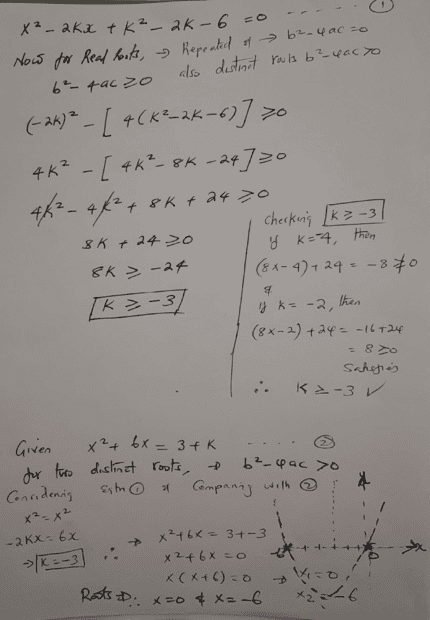 x² - 2Kx + K² - 2K - 6 = 0 - - - - - ①
Now for Real Roots, → Repeated → b² - 4ac = 0
also distinct roots b² - 4ac > 0
b² - 4ac ≥ 0
(-2K)² - [4(K² - 2K - 6)] ≥ 0
4K² - [4K² - 8K - 24] ≥ 0
4K² - 4K² + 8K + 24 ≥ 0
8K + 24 ≥ 0
8K ≥ -24
K ≥ -3
Checking K ≥ -3
if K = -4, then
(8x-4) + 24 = -8 ≱ 0
&
if K = -2, then
(8x-2) + 24 = -16 + 24
= 8 ≥ 0
Satisfies
∴ K ≥ -3 ✓
Given x² + 6x = 3 + K - - - - ②
for two distinct roots, → b² - 4ac > 0
Considering Eqtn ① & Comparing with ②
x² = x²
-2Kx = 6x
→ K = -3
∴ → x² + 6x = 3 + -3
x² + 6x = 0
x(x + 6) = 0 → x₁ = 0
x₂ = -6
Roots ∴ x = 0 & x = -6
-6
0
x